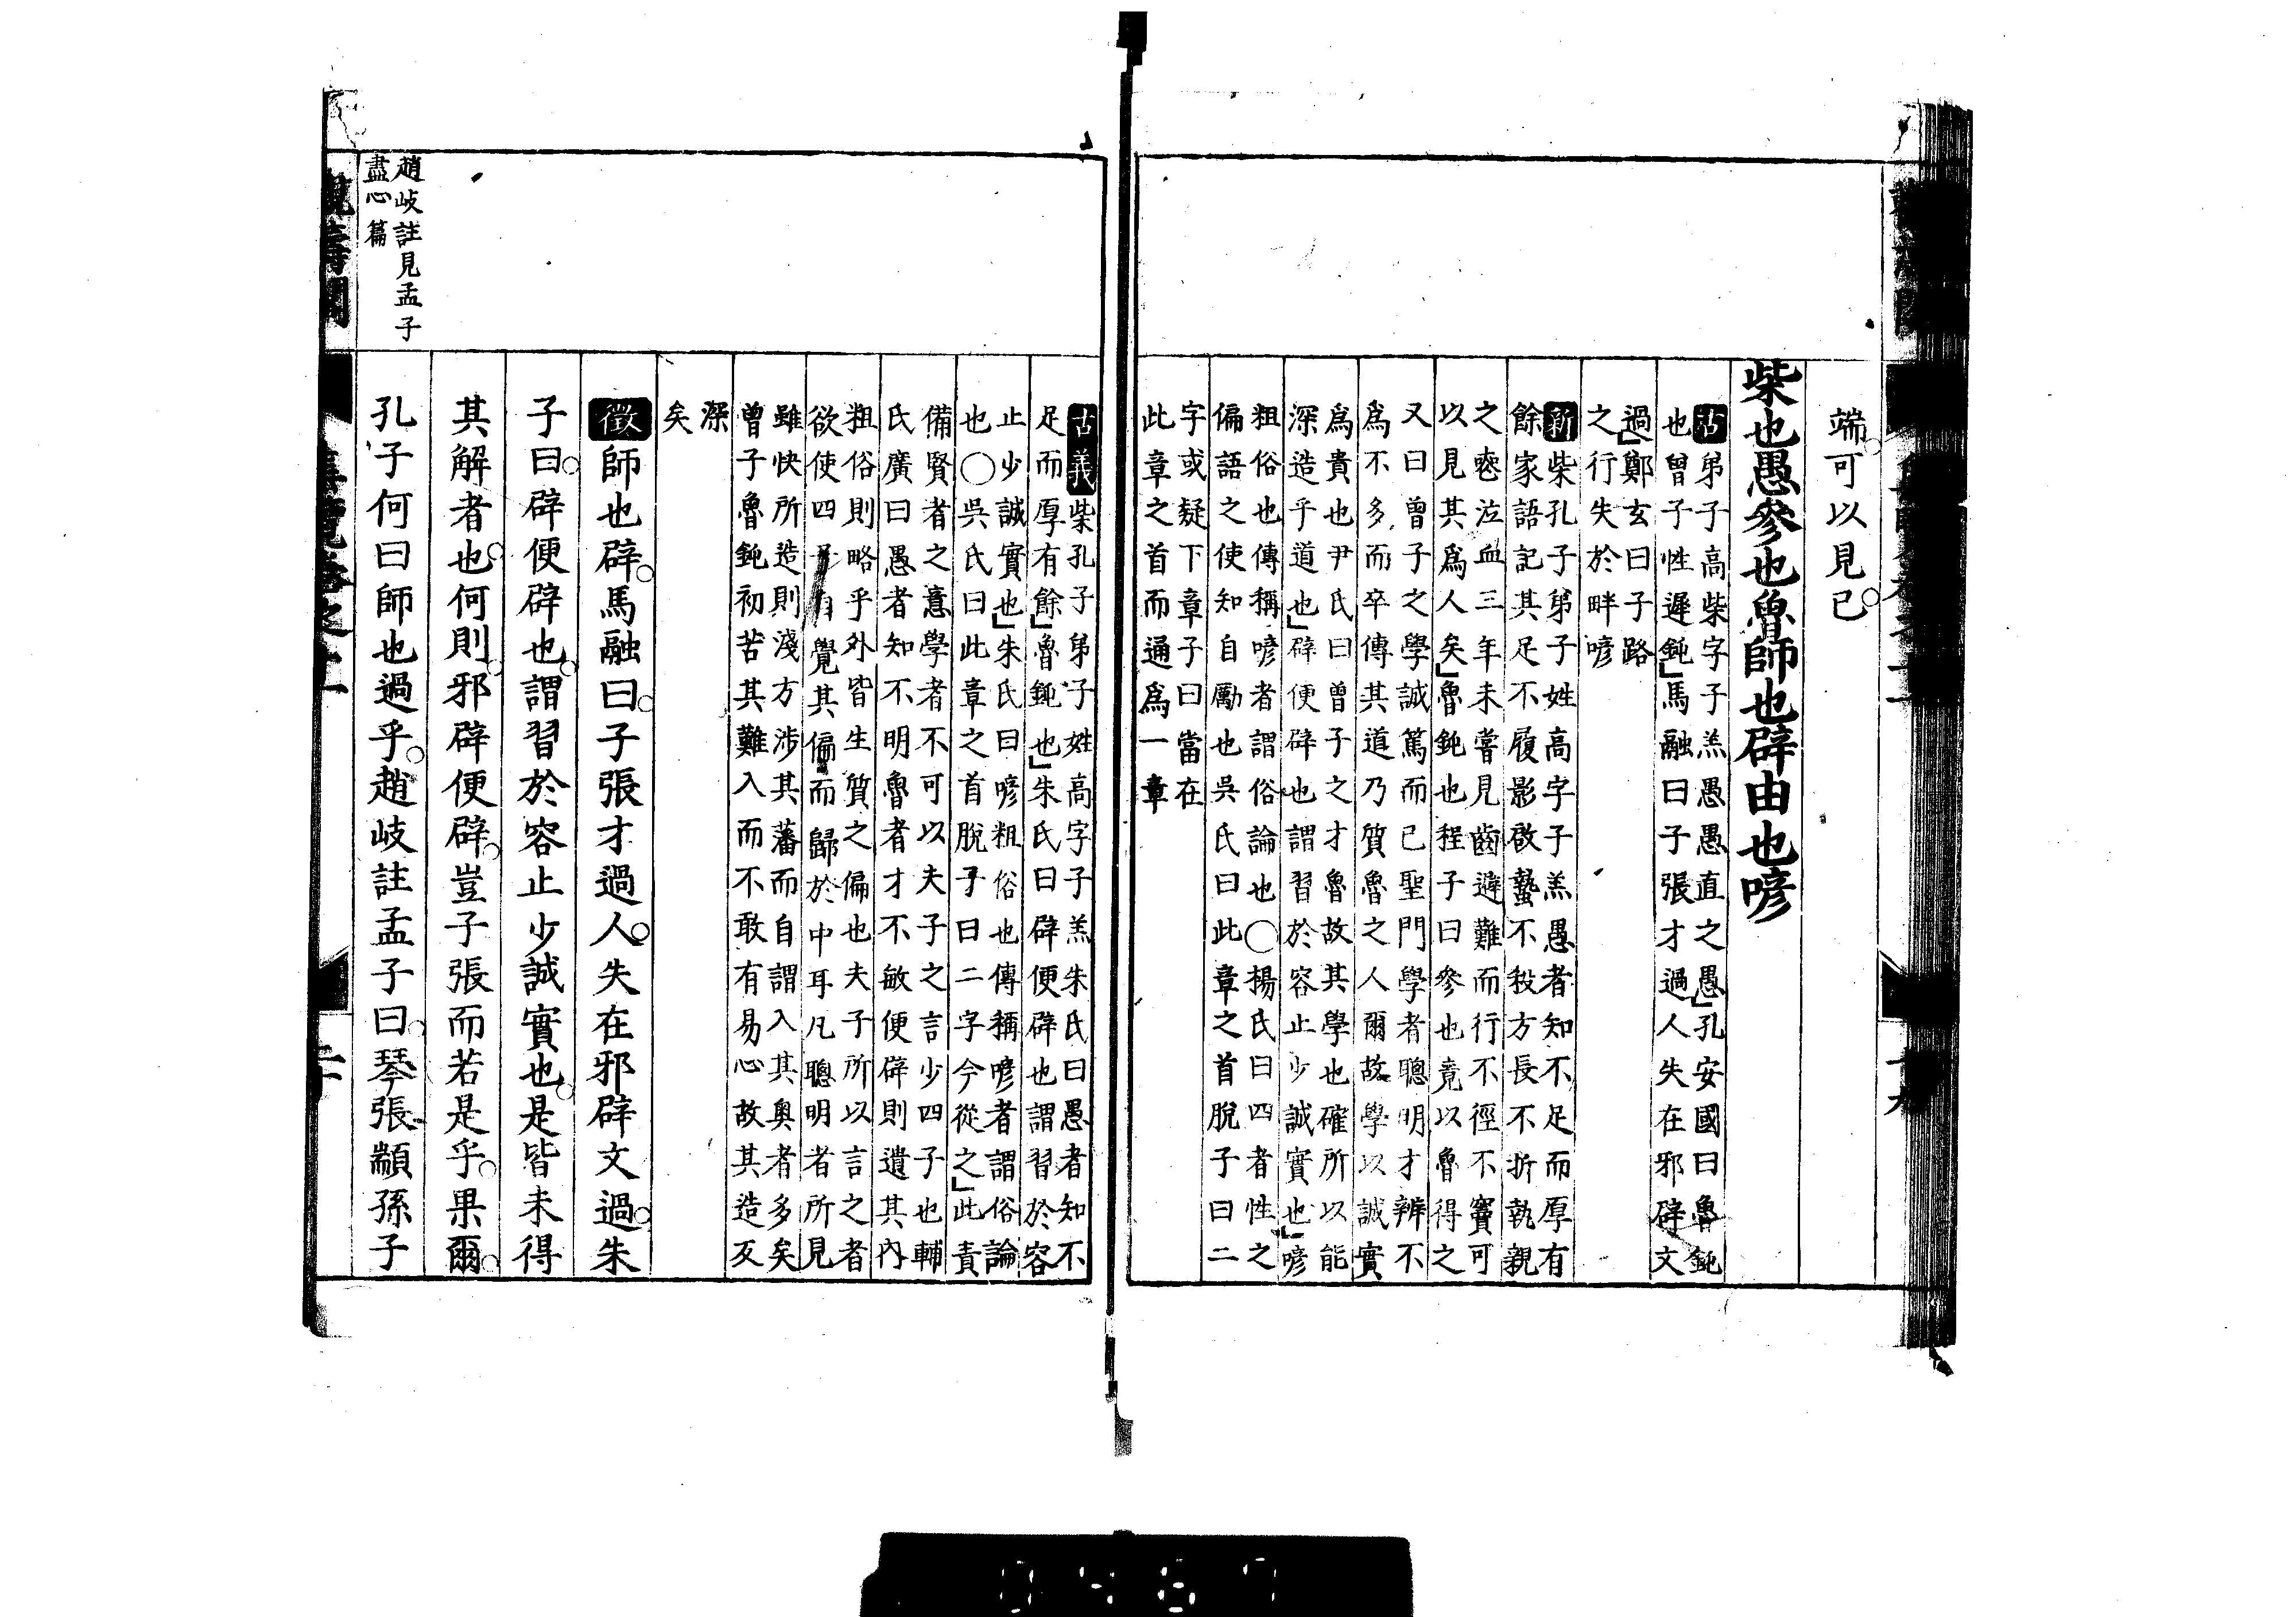 端可以見已
柴也愚參也魯師也辟由也喭
古弟子高柴字子羔愚愚直之愚孔安國曰魯鈍
也曾子性遲鈍馬融曰子張才過人失在邪辟文
過鄭玄曰子路
之行失於畔喭
新柴孔子弟子姓高字子羔愚者知不足而厚有
餘家語記其足不履影啟蟄不殺方長不折執親
之喪泣血三年未嘗見齒避難而行不徑不竇可
以見其爲人矣魯鈍也程子曰參也竟以魯得之
又曰曾子之學誠篤而已聖門學者聰明才辨不
爲不多而卒傳其道乃質魯之人爾故學以誠實
爲貴也尹氏曰曾子之才魯故其學也確所以能
深造乎道也辟便辟也謂習於容止少誠實也喭
粗俗也傳稱喭者謂俗論也〇楊氏曰四者性之
偏語之使知自勵也吳氏曰此章之首脫子曰二
字或疑下章子曰當在
此章之首而通爲一章
古義柴孔子弟子姓高字子羔朱氏曰愚者知不
足而厚有餘魯鈍也朱氏曰辟便辟也謂習於容
止少誠實也朱氏曰喭粗俗也傳稱喭者謂俗論
也〇吳氏曰此章之首脫子曰二字今從之此責
備賢者之意學者不可以夫子之言少四子也輔
氏廣曰愚者知不明魯者才不敏便辟則遺其內
粗俗則略乎外皆生質之偏也夫子所以言之者
欲使四子自覺其偏而歸於中耳凡聰明者所見
雖快所造則淺方涉其藩而自謂入其奧者多矣
曾子魯鈍初苦其難入而不敢有易心故其造反
深
矣
徵師也辟馬融曰子張才過人失在邪辟文過朱
子曰辟便辟也謂習於容止少誠實也是皆未得
其解者也何則邪辟便辟豈子張而若是乎果爾
孔子何曰師也過乎趙岐註孟子曰琴張顓孫子
趙岐註見孟子
盡心篇